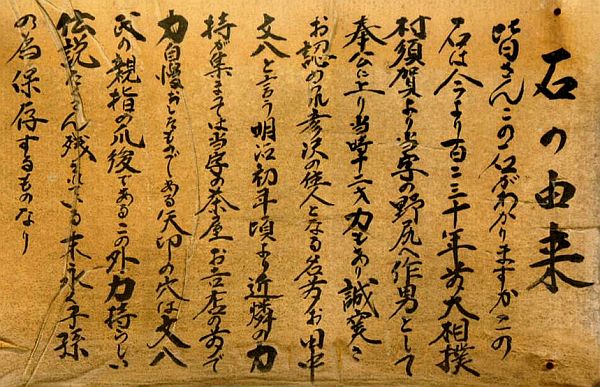 ・石の由来
皆さんこの石がわかりますかこの
石は今より百二三十年前大相撲
村須賀より当字の野尻へ作男として
奉公に上り当時十二才力もあり誠実さ
お認められ沢の住人となる名前お田中
文八と言う明治初年頃より近燐の力
持が集まては当字の茶屋お吉店の前で
力自慢おしたものである矢印の穴は文八
氏の親指の爪後であるこの外力持らしい
伝説たくさん残されている末永く子孫
の為保存するものなり